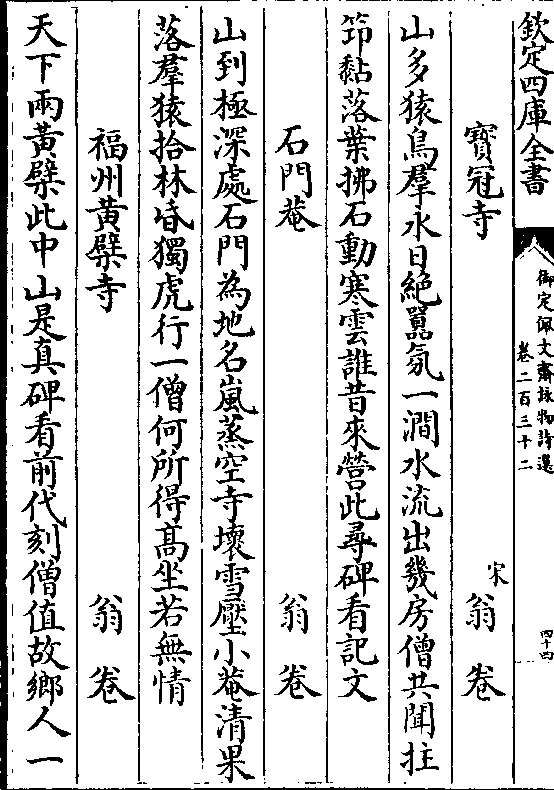 欽定四庫全書
御定佩文齋詠物詩選
卷二百三十二
四十四
寶冠寺
宋
翁卷
山多猿鳥羣永日絶囂氛一澗水流出幾房僧共聞拄
笻黏落葉拂石動寒雲誰昔來營此尋碑看記文
石門菴
翁卷
山到極深處石門為地名嵐蒸空寺壞雪壓小菴清果
落羣猿拾林昏獨虎行一僧何所得高坐若無情
福州黄檗寺
翁卷
天下兩黄檗此中山是真碑看前代刻僧值故鄉人一